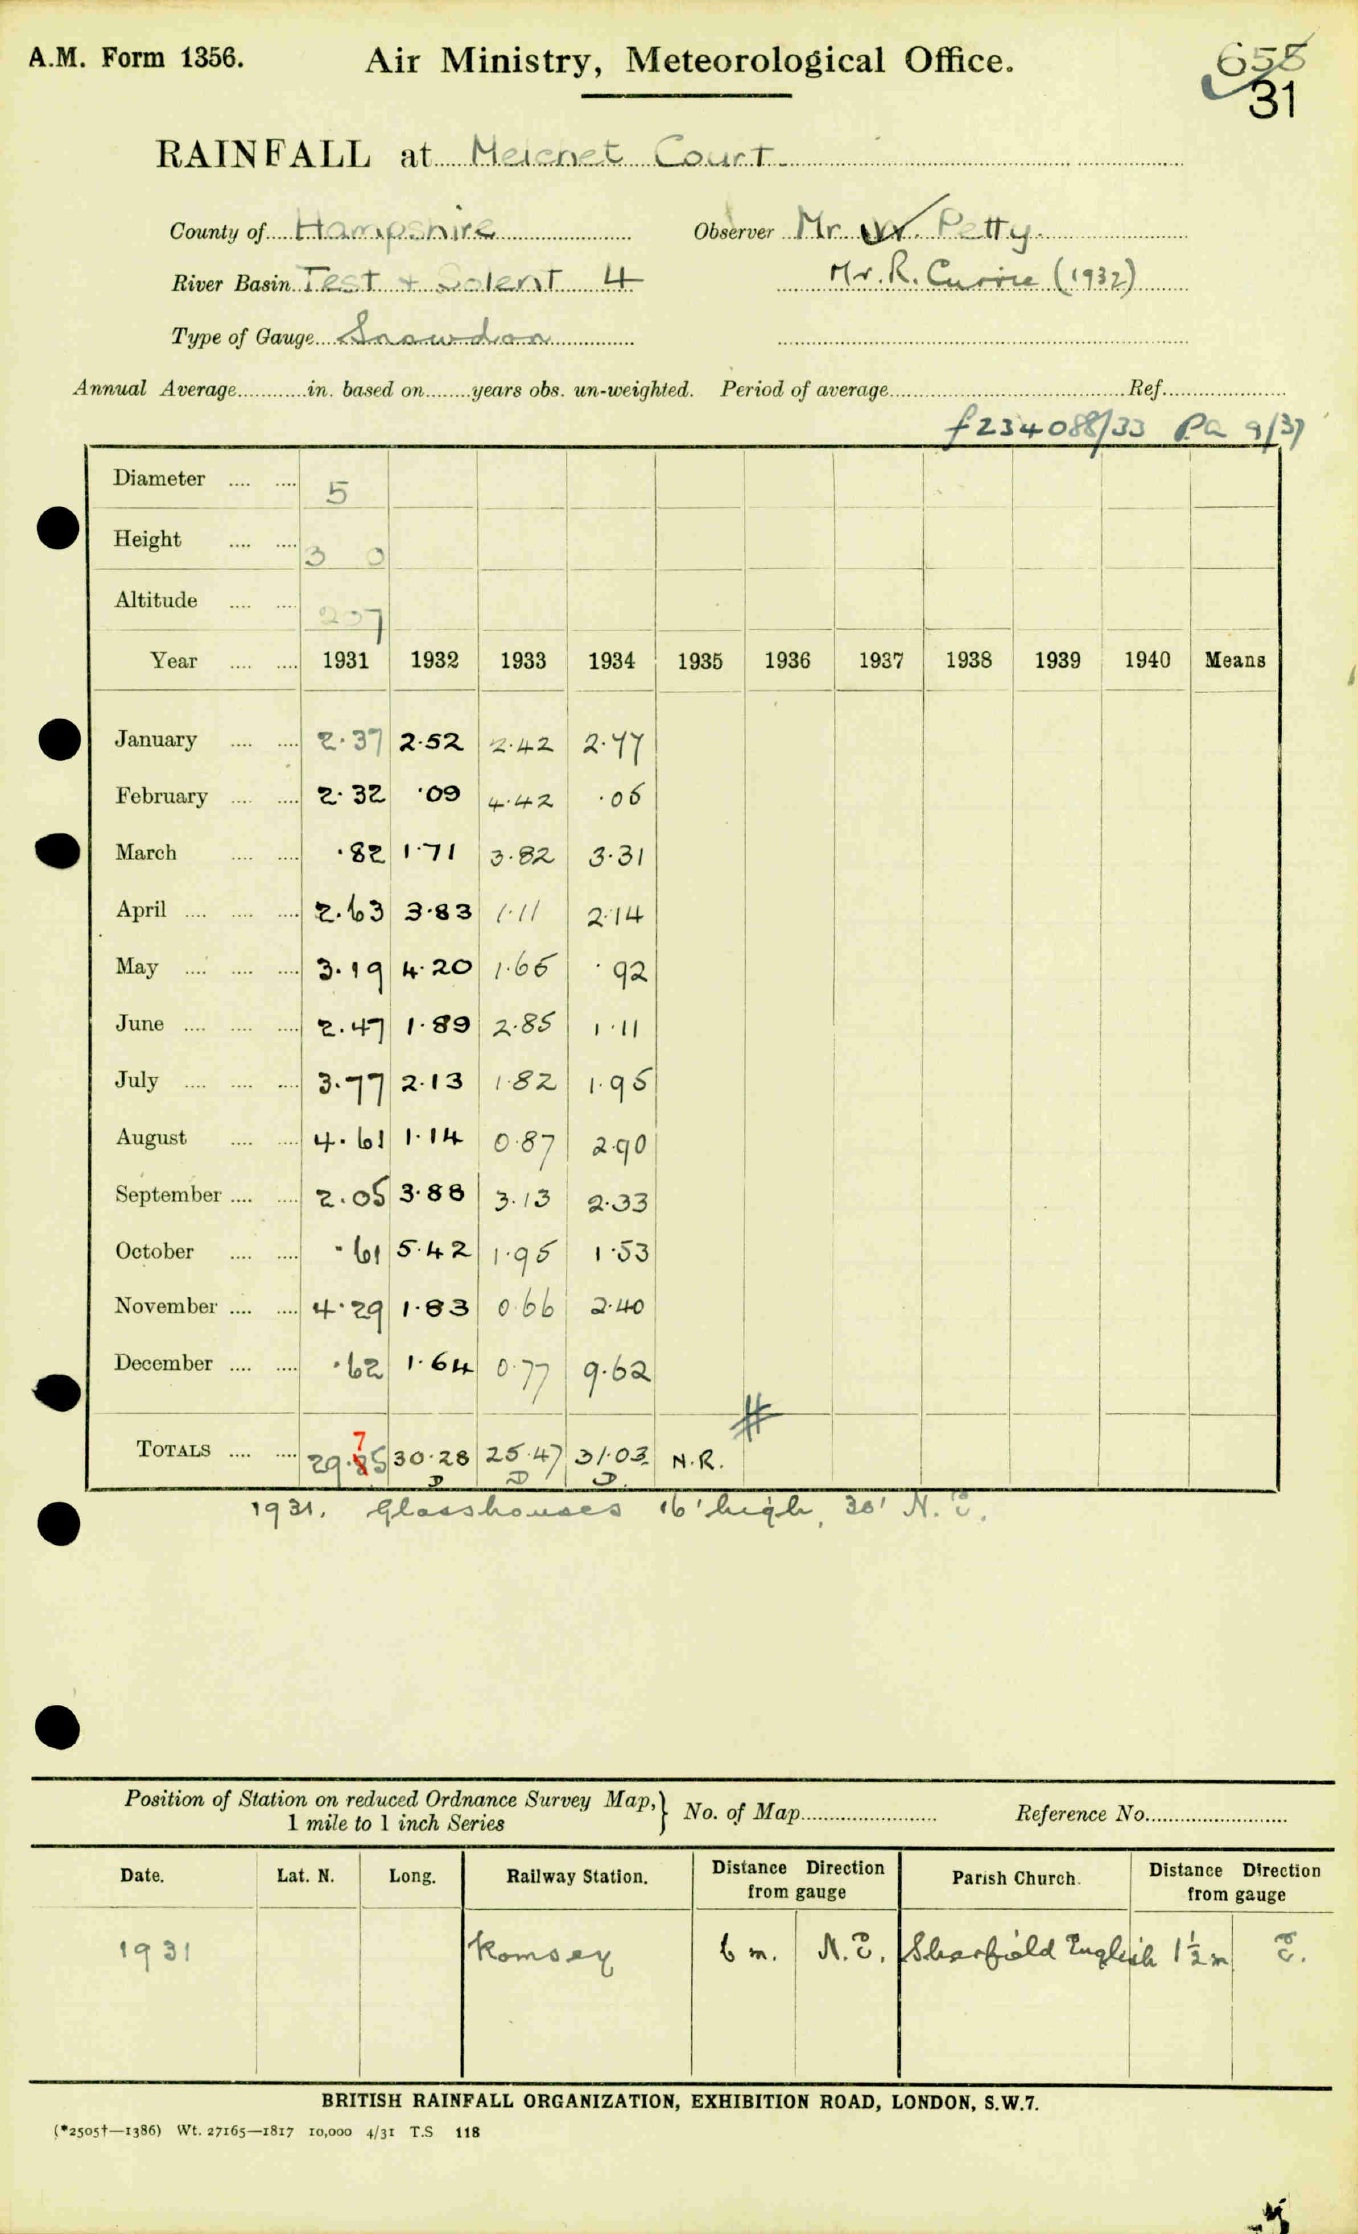 A.M. Form 1356. Air Ministry, Meteorological Office. 658
31
RAINFALL at Melchet Court.
County of Hampshire Observer Mr. W. Petty.
River Basin Test + Solent 4 Mr. R. Currie (1932)
Type of Gauge Snowdon
Annual Average in. based on years obs. un-weighted. Period of average Ref.
f234088/33 PA 9/37
Diameter 5
Height 3 0
Altitude 207
Year 1931 1932 1933 1934 1935 1936 1937 1938 1939 1940 Means
January 2.37 2.52 2.42 2.77
February 2.32 .09 4.42 .05
March .82 1.71 3.82 3.31
April 2.63 3.83 1.11 2.14
May 3.19 4.20 1.65 .92
June 2.47 1.89 2.85 1.11
July 3.77 2.13 1.82 1.95
August 4.61 1.14 0.87 2.90
September 2.05 3.88 3.13 2.33
October .61 5.42 1.95 1.53
November 4.29 1.83 0.66 2.40
December .62 1.64 0.77 9.62
#
7
TOTALS 29.85 30.28 25.47 31.03 N.R.
D D D
1931. Glasshouses 16' high, 30' N.E.
Position of Station on reduced Ordnance Survey Map, } No. of Map Reference No.
1 mile to 1 inch Series
Date. Lat. N. Long. Railway Station. Distance Direction from gauge Parish Church. Distance Direction from gauge
1931 Romsey 6 m. N.E. Sherfield English 1½ m E.
BRITISH RAINFALL ORGANIZATION, EXHIBITION ROAD, LONDON, S.W.7.
(*2505†—1386) Wt. 27165—1817 10,000 4/31 T.S 118